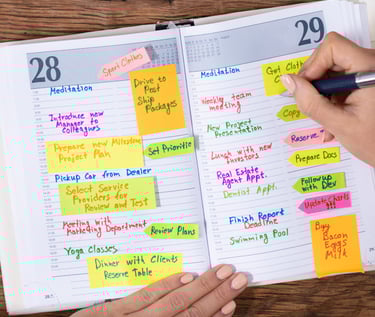 28
Sport Clothes
Meditation
Drive to
Post
Ship
Packages
Introduce new
Manager to
Colleagues
Prepare new Milestone
Project Plan
Set Prioritie
Pickup Car from Dealer
Select Service
Providers for
Review and Test
Meeting with
Marketing Department
Review Plans
Yoga Classes
Dinner with Clients
Reserve Table
29
Meditation
Get Cloth
Weekly team
meeting
Copy
New Project
Presentation
Reserve
Lunch with new
investors
Prepare Docs
Real Estate
Agent Appt.
Follow up
with Dex
Dentist Appt.
Update Charts
!!!
Finish Report
Deadline
Swimming Pool
Buy
Bacon
Eggs
Milk